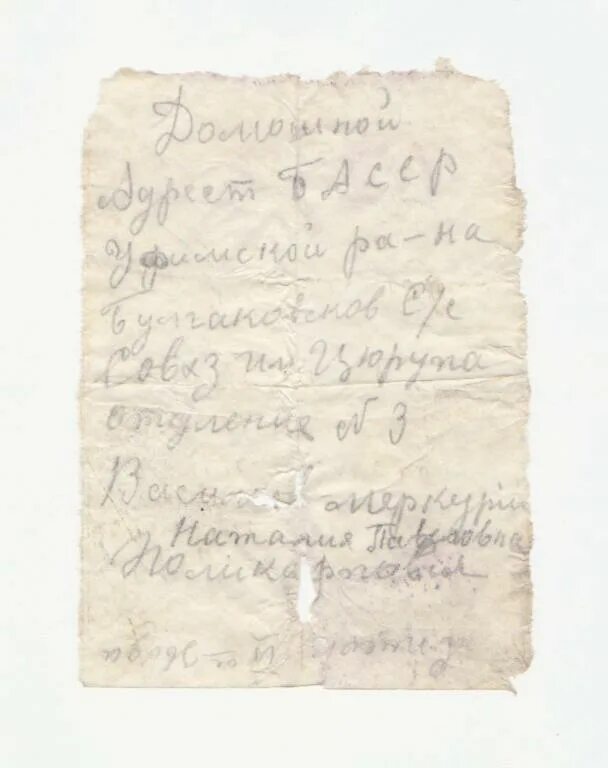 Домошной
Адрест БАССР
Уфимской ра-на
Булгаковсков С/с
Совхз им Цюрупа
отделение N 3
меркурий
Наталия Павловна
Поликарповна